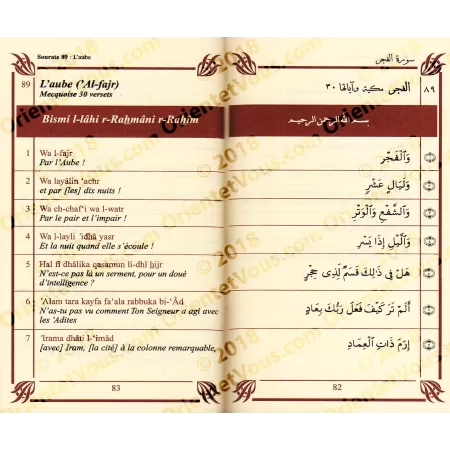 Sourate 89 : L'aube
89 L'aube ('Al-fajr)
Mecquoise 30 versets
Bismi l-lâhi r-Rahmâni r-Rahîm
1 Wa l-fajr
Par l'Aube !
2 Wa layâlin 'achr
et par [les] dix nuits !
3 Wa ch-chaf'i wa l-watr
Par le pair et l'impair !
4 Wa l-layli 'idhâ yasr
Et la nuit quand elle s'écoule !
5 Hal fî dhâlika qasamun li-dhî hijr
N'est-ce pas là un serment, pour un doué
d'intelligence ?
6 'Alam tara kayfa fa'ala rabbuka bi-'Âd
N'as-tu pas vu comment Ton Seigneur a agi avec
les 'Adites
7 'Irama dhâti l-'imâd
[avec] Iram, [la cité] à la colonne remarquable,
83
سورة الفجر
٨٩ الفجر مكية وآياتها ٣٠
بسم الله الرحمن الرحيم
وَالْفَجْرِ
وَلَيَالٍ عَشْرٍ
وَالشَّفْعِ وَالْوَتْرِ
وَالَّيْلِ إِذَا يَسْرِ
هَلْ فِي ذَلِكَ قَسَمٌ لِّذِي حِجْرٍ
أَلَمْ تَرَ كَيْفَ فَعَلَ رَبُّكَ بِعَادٍ
إِرَمَ ذَاتِ الْعِمَادِ
82
© 2018
OrientetVous.com